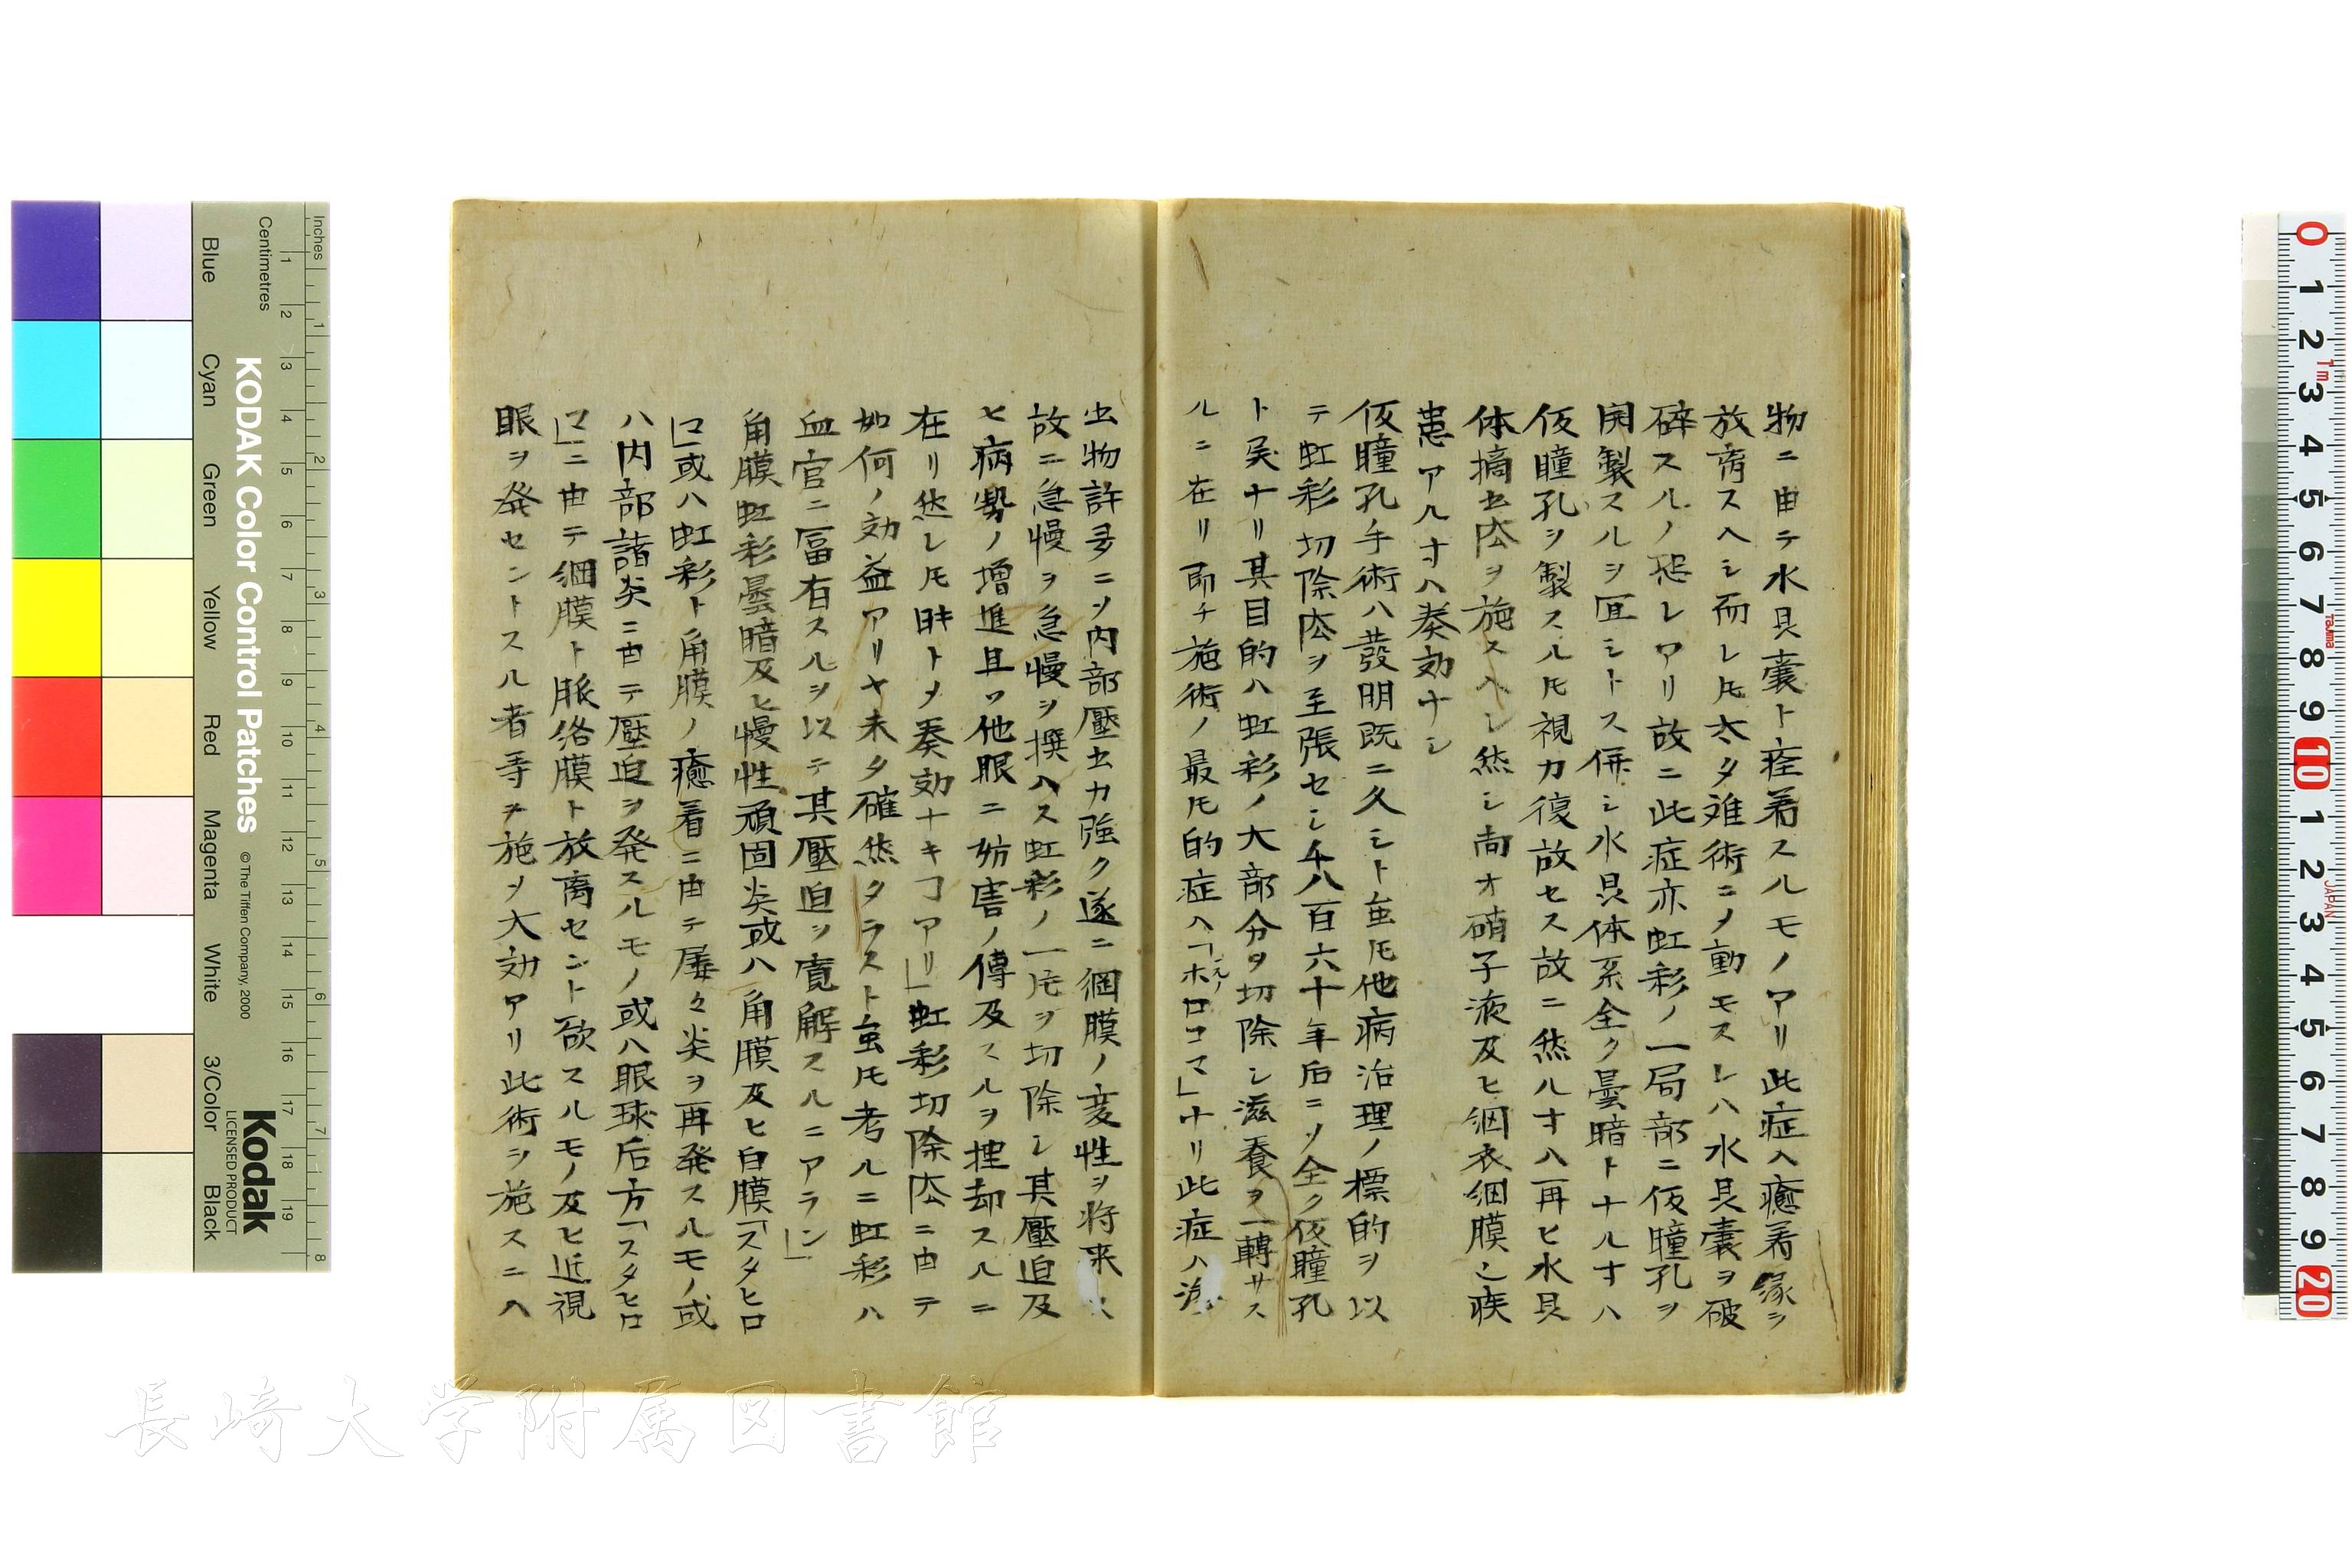 物ニ由テ水具嚢ト痊着スルモノアリ此症ヘ癒着縁ヲ
放斉スヘシ而レ𪜈太タ难術ニメ動モスレハ水具嚢ヲ破
碎スルノ恐レアリ故ニ此症亦虹彩ノ一局部ニ仮瞳孔ヲ
開製スルヲ冝シトス併シ水具体系全ク曇暗トナルオハ
仮瞳孔ヲ製スル𪜈視力復故セス故ニ然ルオハ再ヒ水具
体摘出㳒ヲ施スヘシ然シ尚オ硝子液及ヒ網衣網膜ニ疾
患アルオハ奏効ナシ
仮瞳孔手術ハ發明既ニ久シト虽𪜈他病治理ノ標的ヲ以
テ虹彩切除㳒ヲ至張セシ千八百六十年后ニソ全ク仮瞳孔
ト異ナリ其目的ハ虹彩ノ大部分ヲ切除シ滋養ヲ一轉サス
ルニ在リ即チ施術ノ最𪜈的症ヘ「ホロコマ」ナリ此症ハ滲
出物許多ニソ内部壓出力強ク遂ニ網膜ノ変性ヲ将来ス
故ニ急慢ヲ急慢ヲ撰ハス虹彩ノ一片ヲ切除シ其壓迫及
ヒ病勢ノ増進且ツ他眼ニ妨害ノ傳及スルヲ挫却スルニ
在リ然レ𪜈時トメ奏効ナキヿアリ」虹彩切除㳒ニ由テ
如何ノ効益アリヤ未タ確然タラスト虽𪜈考ルニ虹彩ハ
血官ニ冨有スルヲ以テ其壓迫ヲ寛解スルニアラン」
角膜虹彩曇暗及ヒ慢性頑固炎或ハ角膜及ヒ白膜「スタヒロ
マ」或ハ虹彩ト角膜ノ癒着ニ由テ屡々炎ヲ再発スルモノ或
ハ内部諸炎ニ由テ壓迫ヲ発スルモノ或ハ眼球后方「スタヒロ
マ」ニ由テ網膜ト脈絡膜ト放离セント欲スルモノ及ヒ近視
眼ヲ発セントスル者等ヲ施ソ大効アリ此術ヲ施スニハ
KODAK Color Control Patches
© The Tiffen Company, 2000
Kodak
LICENSED PRODUCT
Inches
Centimetres
Blue
Cyan
Green
Yellow
Red
Magenta
White
3/Color
Black
長崎大学附属図書館